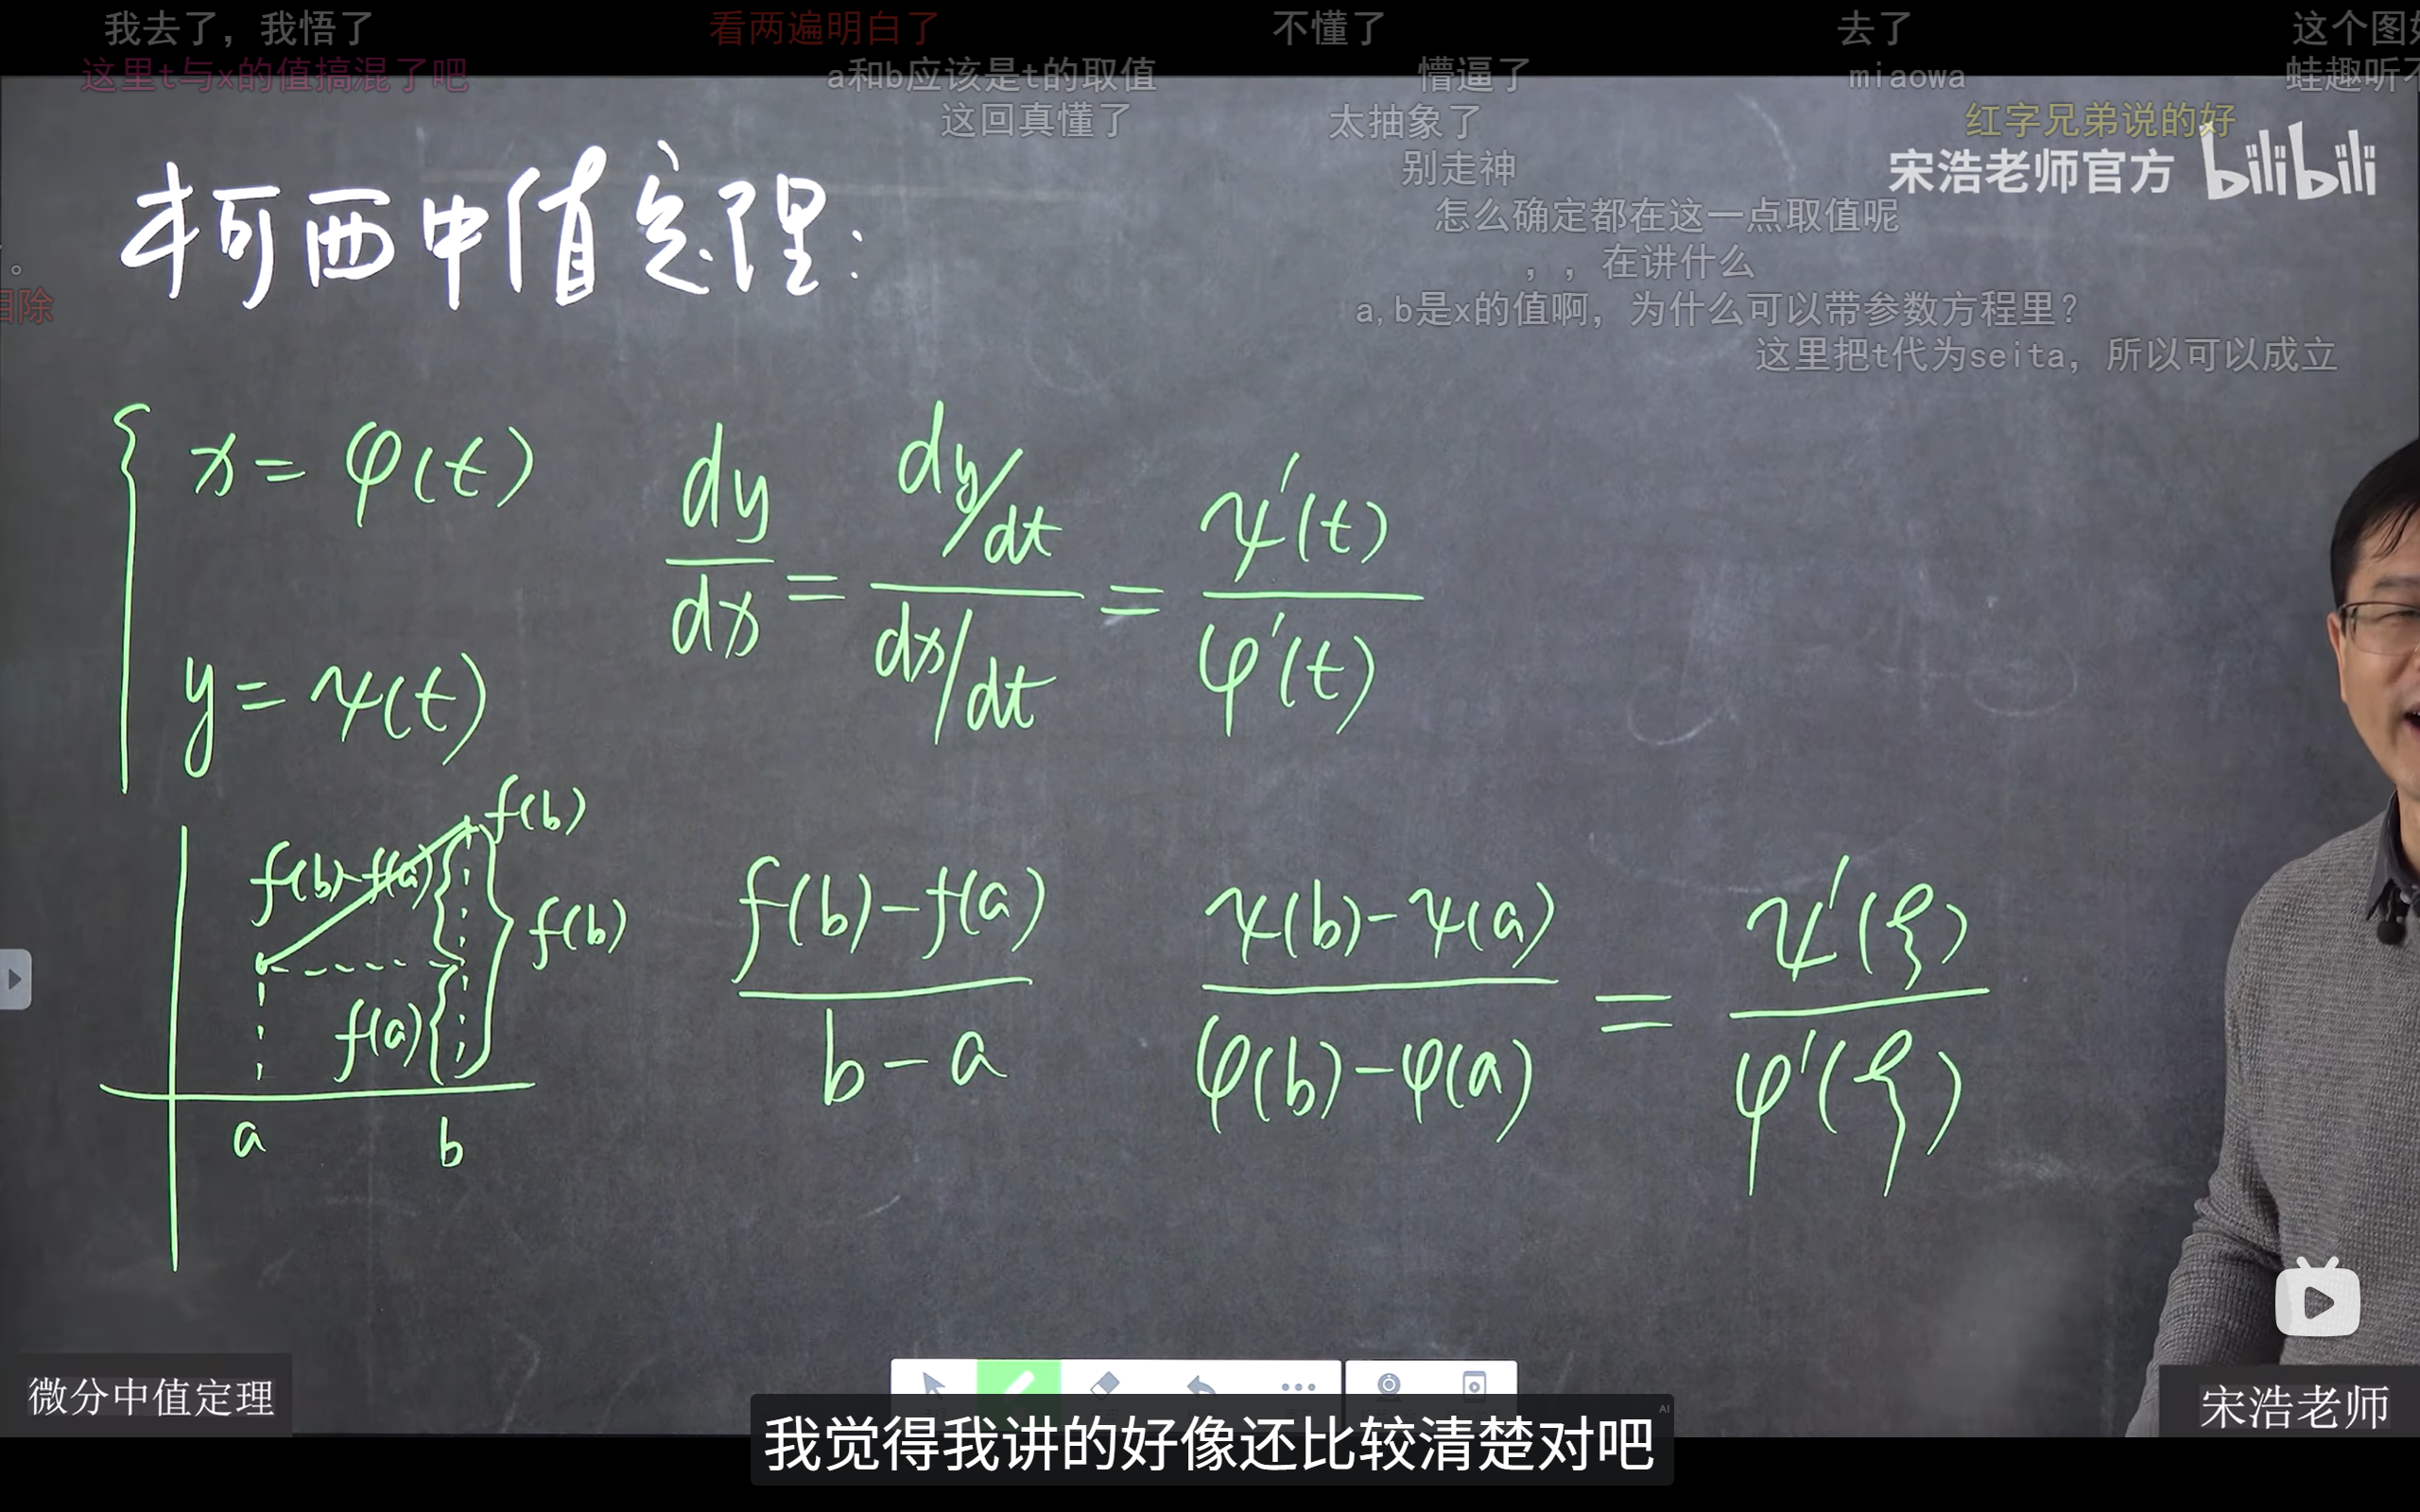 我去了，我悟了 看两遍明白了 不懂了 去了 这个图
这里t与x的值搞混了吧 a和b应该是t的取值 懵逼了 miaowa 蛙趣听不
这回真懂了 太抽象了 红字兄弟说的好
别走神 宋浩老师官方 bilibili
柯西中值定理：
怎么确定都在这一点取值呢
。 ，，在讲什么
相除 a,b是x的值啊，为什么可以带参数方程里？
这里把t代为seita，所以可以成立
{ x = φ(t)
y = ψ(t)
dy/dx = (dy/dt)/(dx/dt) = ψ'(t)/φ'(t)
f(b)
f(b)-f(a)
f(b)
f(a)
a b
(f(b)-f(a))/(b-a)
(ψ(b)-ψ(a))/(φ(b)-φ(a)) = ψ'(ξ)/φ'(ξ)
微分中值定理
AI
我觉得我讲的好像还比较清楚对吧
宋浩老师